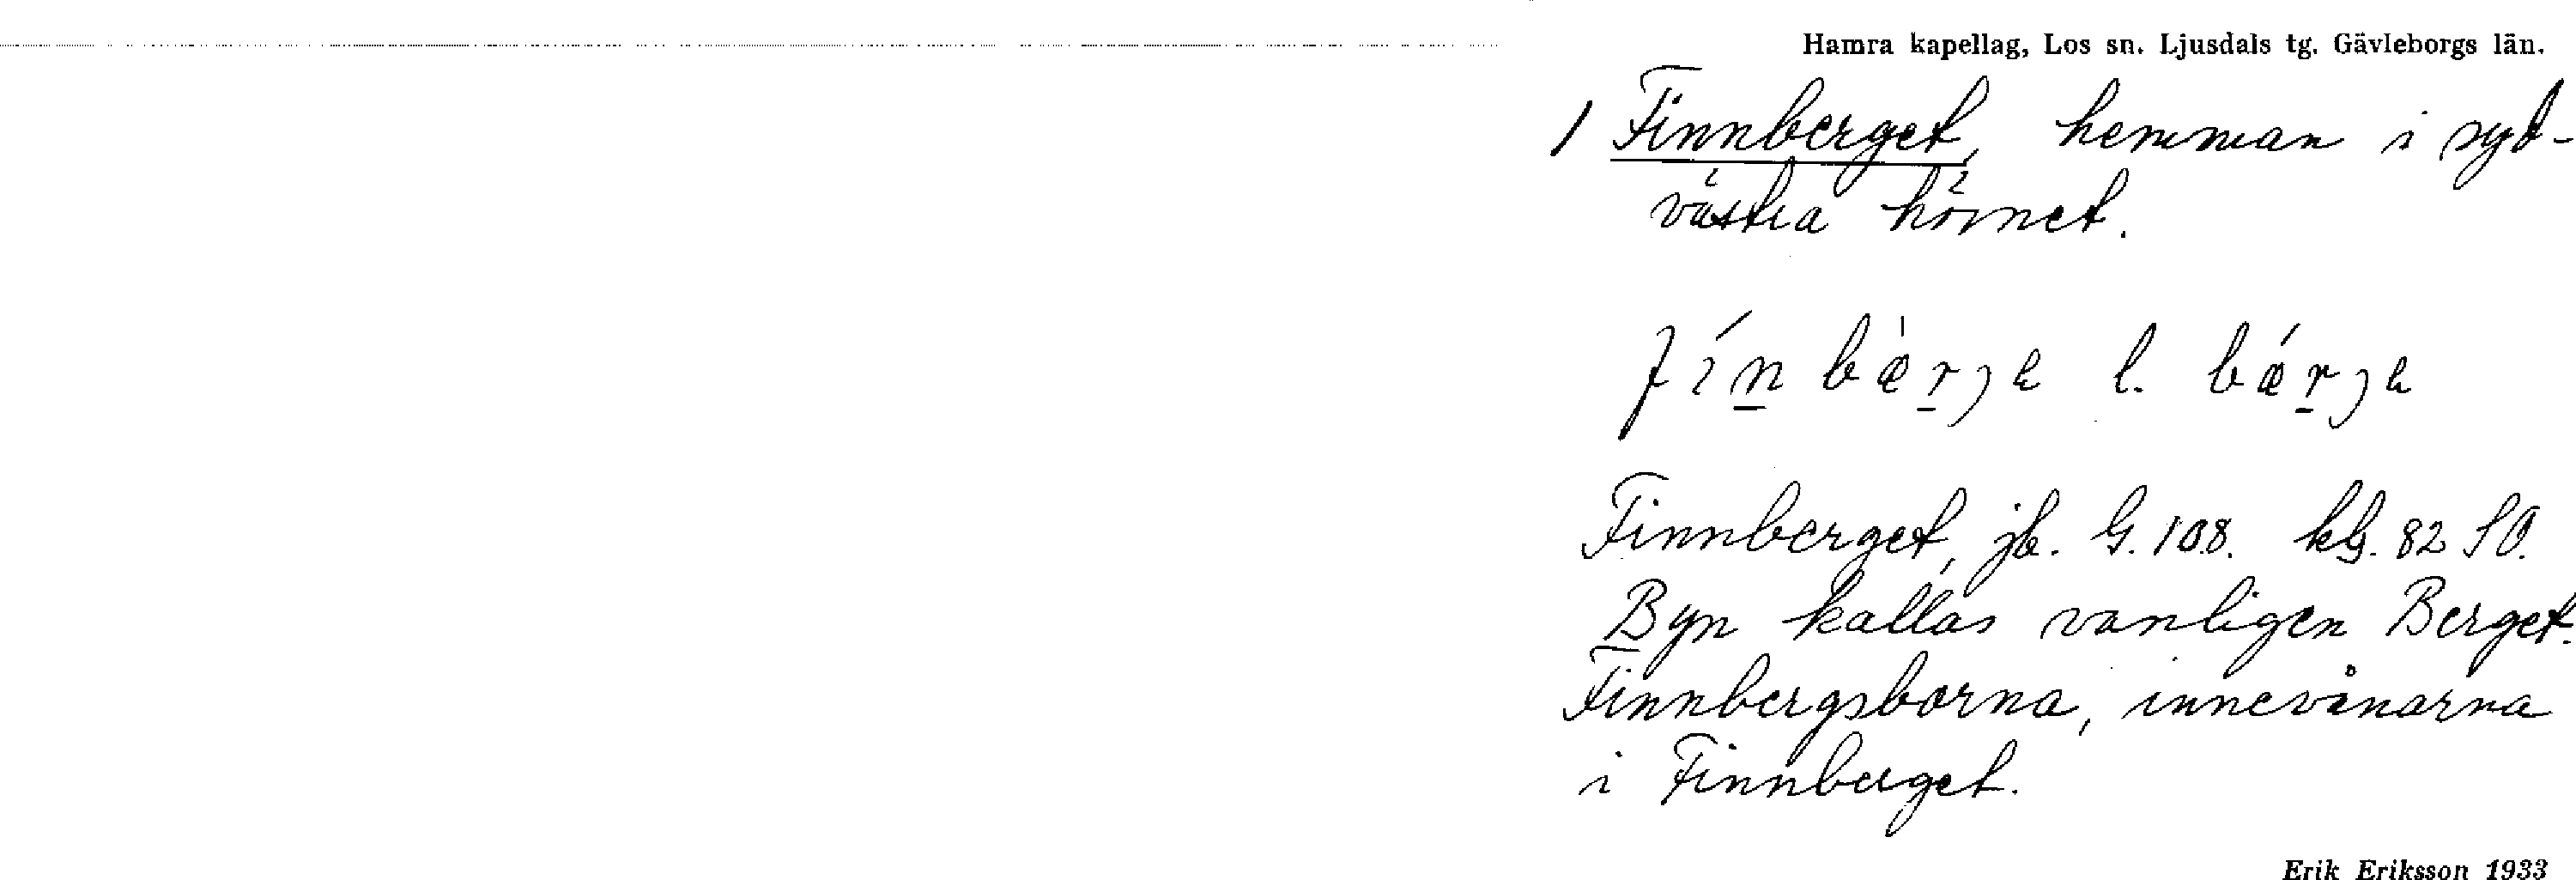 Hamra kapellag, Los sn. Ljusdals tg. Gävleborgs län.
1 Finnberget, hemman i syd-
västra hörnet.
fínbæ̀rjɛ l. bǽrjɛ
Finnberget, jb. G. 108. kb. 82 SO.
Byn kallas vanligen Berget.
Finnbergsborna, innevånarna
i Finnberget.
Erik Eriksson 1933